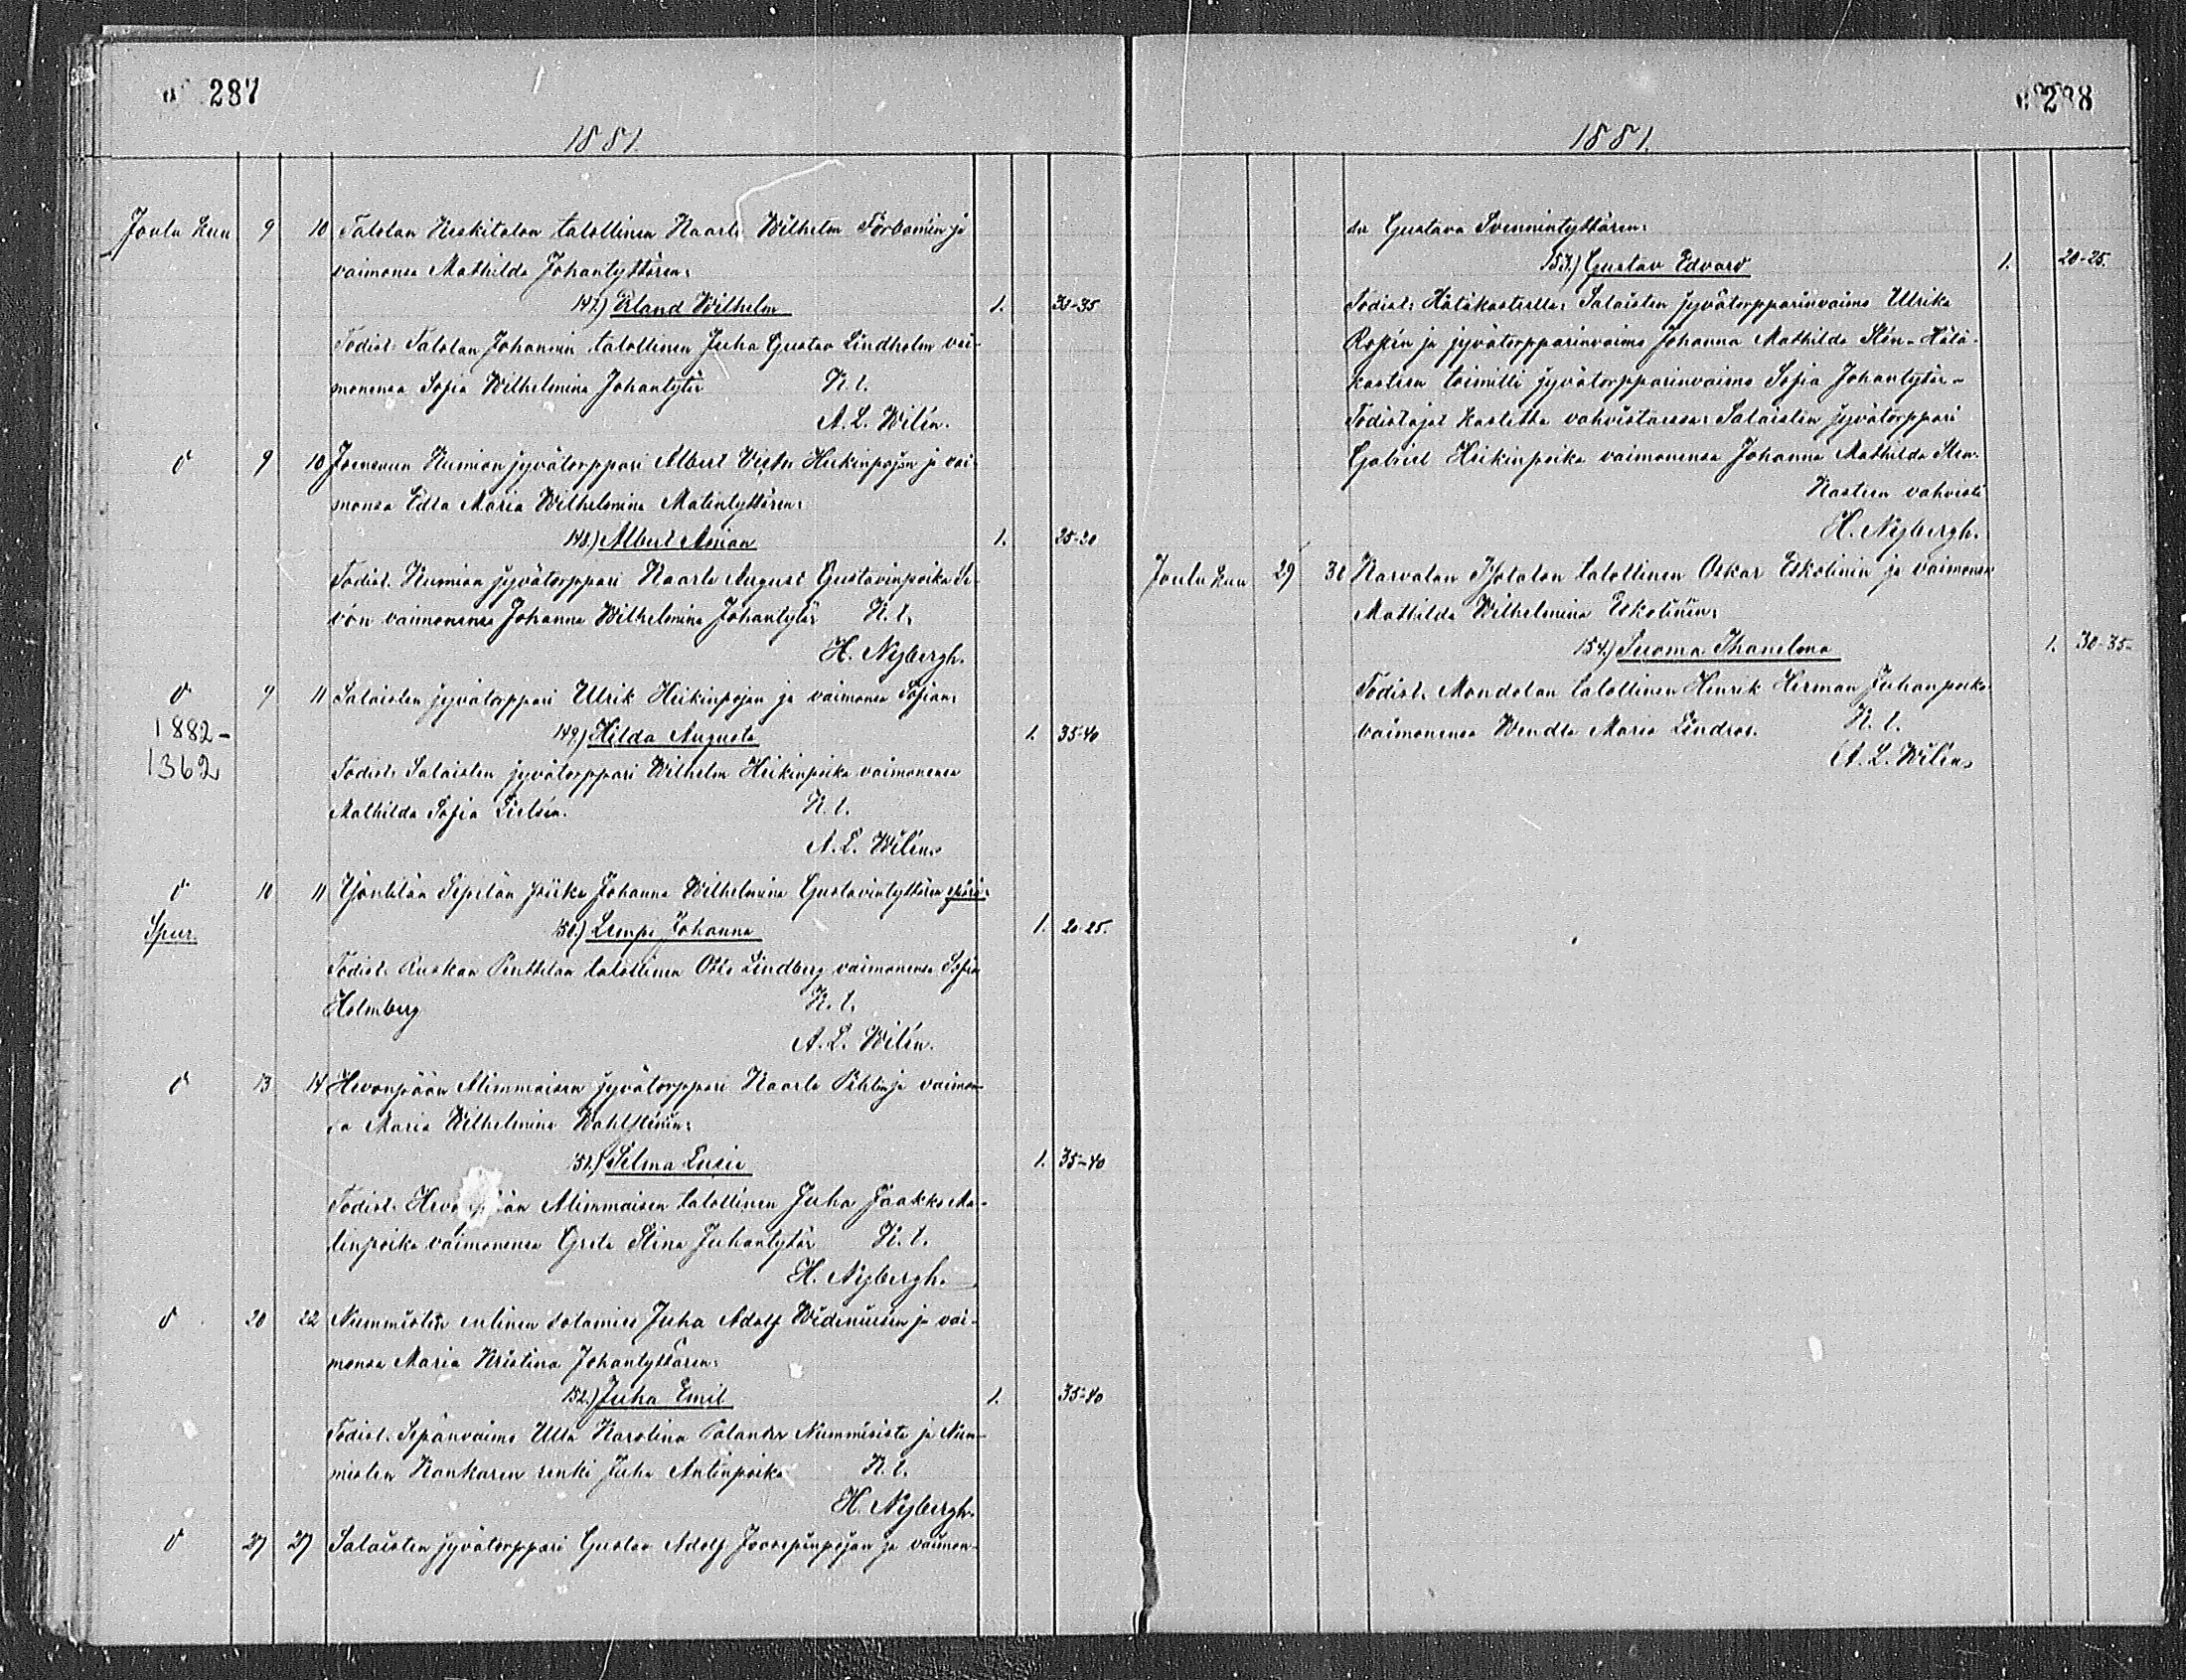 287
1881.
Joulu kuu 9 10 Talolan Keskitalon talollinen Kaarlo Wilhelm ja
vaimonsa Mathilda Johantyttären:
147.) Erland Wilhelm 1. 30-35
Todist. Talolan Johannin talollinen Juha Gustav Lindholm vai-
monensa Sofia Wilhelmina Johantytär K. t.
A. L. Wilén.
9 10 Kumion jyvätorppari Albert Heikinpojan ja vai-
monsa Edla Maria Wilhelmina Matintyttären:
148.) Albert 1. 25-30
Todist. Kumion jyvätorppari Kaarlo August Gustavinpoika
vaimonensa Johanna Wilhelmina Johantytär K. t.
H. Nybergh.
9 11 Salaisten jyvätorppari Ulrik Heikinpojan ja vaimonsa Sofian:
1882-
1362
149.) Hilda Augusta 1. 35-40
Todist. Salaisten jyvätorppari Wilhelm Heikinpoika vaimonensa
Mathilda Sofia K. t.
A. L. Wilén.
10 11 Yöntilän Sepelän piika Johanna Wilhelmina Gustavintyttären
Spur.
150.) Lempi Johanna 1. 20-25.
Todist. Ruskon Penttilän talollinen Otto Lindberg vaimonensa Sofia
Holmberg K. t.
A. L. Wilén.
13 14 Hevonpään Alimmaisen jyvätorppari Kaarlo ja vaimon-
sa Maria Wilhelmina Wahlsténin:
151.) Selma Lusia 1. 35-40
Todist. Hevonpään Alimmaisen talollinen Juha Jaakko Ma-
tinpoika vaimonensa Greta Stina Juhantytär K. t.
H. Nybergh.
20 22 Nummisten entinen sotamies Juha Adolf Wideniuksen ja vai-
monsa Maria Kristina Johantyttären:
152.) Juha Emil 1. 35-40
Todist. Sepänvaimo Ulla Karolina Palander Nummisista ja Num-
misten Kankaren renki Juha Antinpoika K. t.
H. Nybergh.
27 27 Salaisten jyvätorppari Gustav Adolf Joosepinpojan ja vaimon-
288
1881.
sa Gustava Svennintyttären:
153.) Gustav Edvard 1. 20-25.
Todist. Hätäkasteella: Salaisten jyvätorpparinvaimo Ulrika
ja jyvätorpparinvaimo Johanna Mathilda Stén - Hätä-
kasteen toimitti jyvätorpparinvaimo Sofia Johantytär -
Todistajat kastetta vahvistaessa: Salaisten jyvätorppari
Gabriel Heikinpoika vaimonensa Johanna Mathilda Stén.
Kasteen vahvisti
H. Nybergh.
Joulu kuu 29 30 Karvalan Isotalon talollinen Oskar Eskolinin ja vaimonsa
Mathilda Wilhelmina Eskolinin:
154.) Suoma 1. 30-35.
Todist. Mondolan talollinen Henrik Herman Juhanpoika
vaimonensa Wendla Maria Lindros. K. t.
A. L. Wilén.